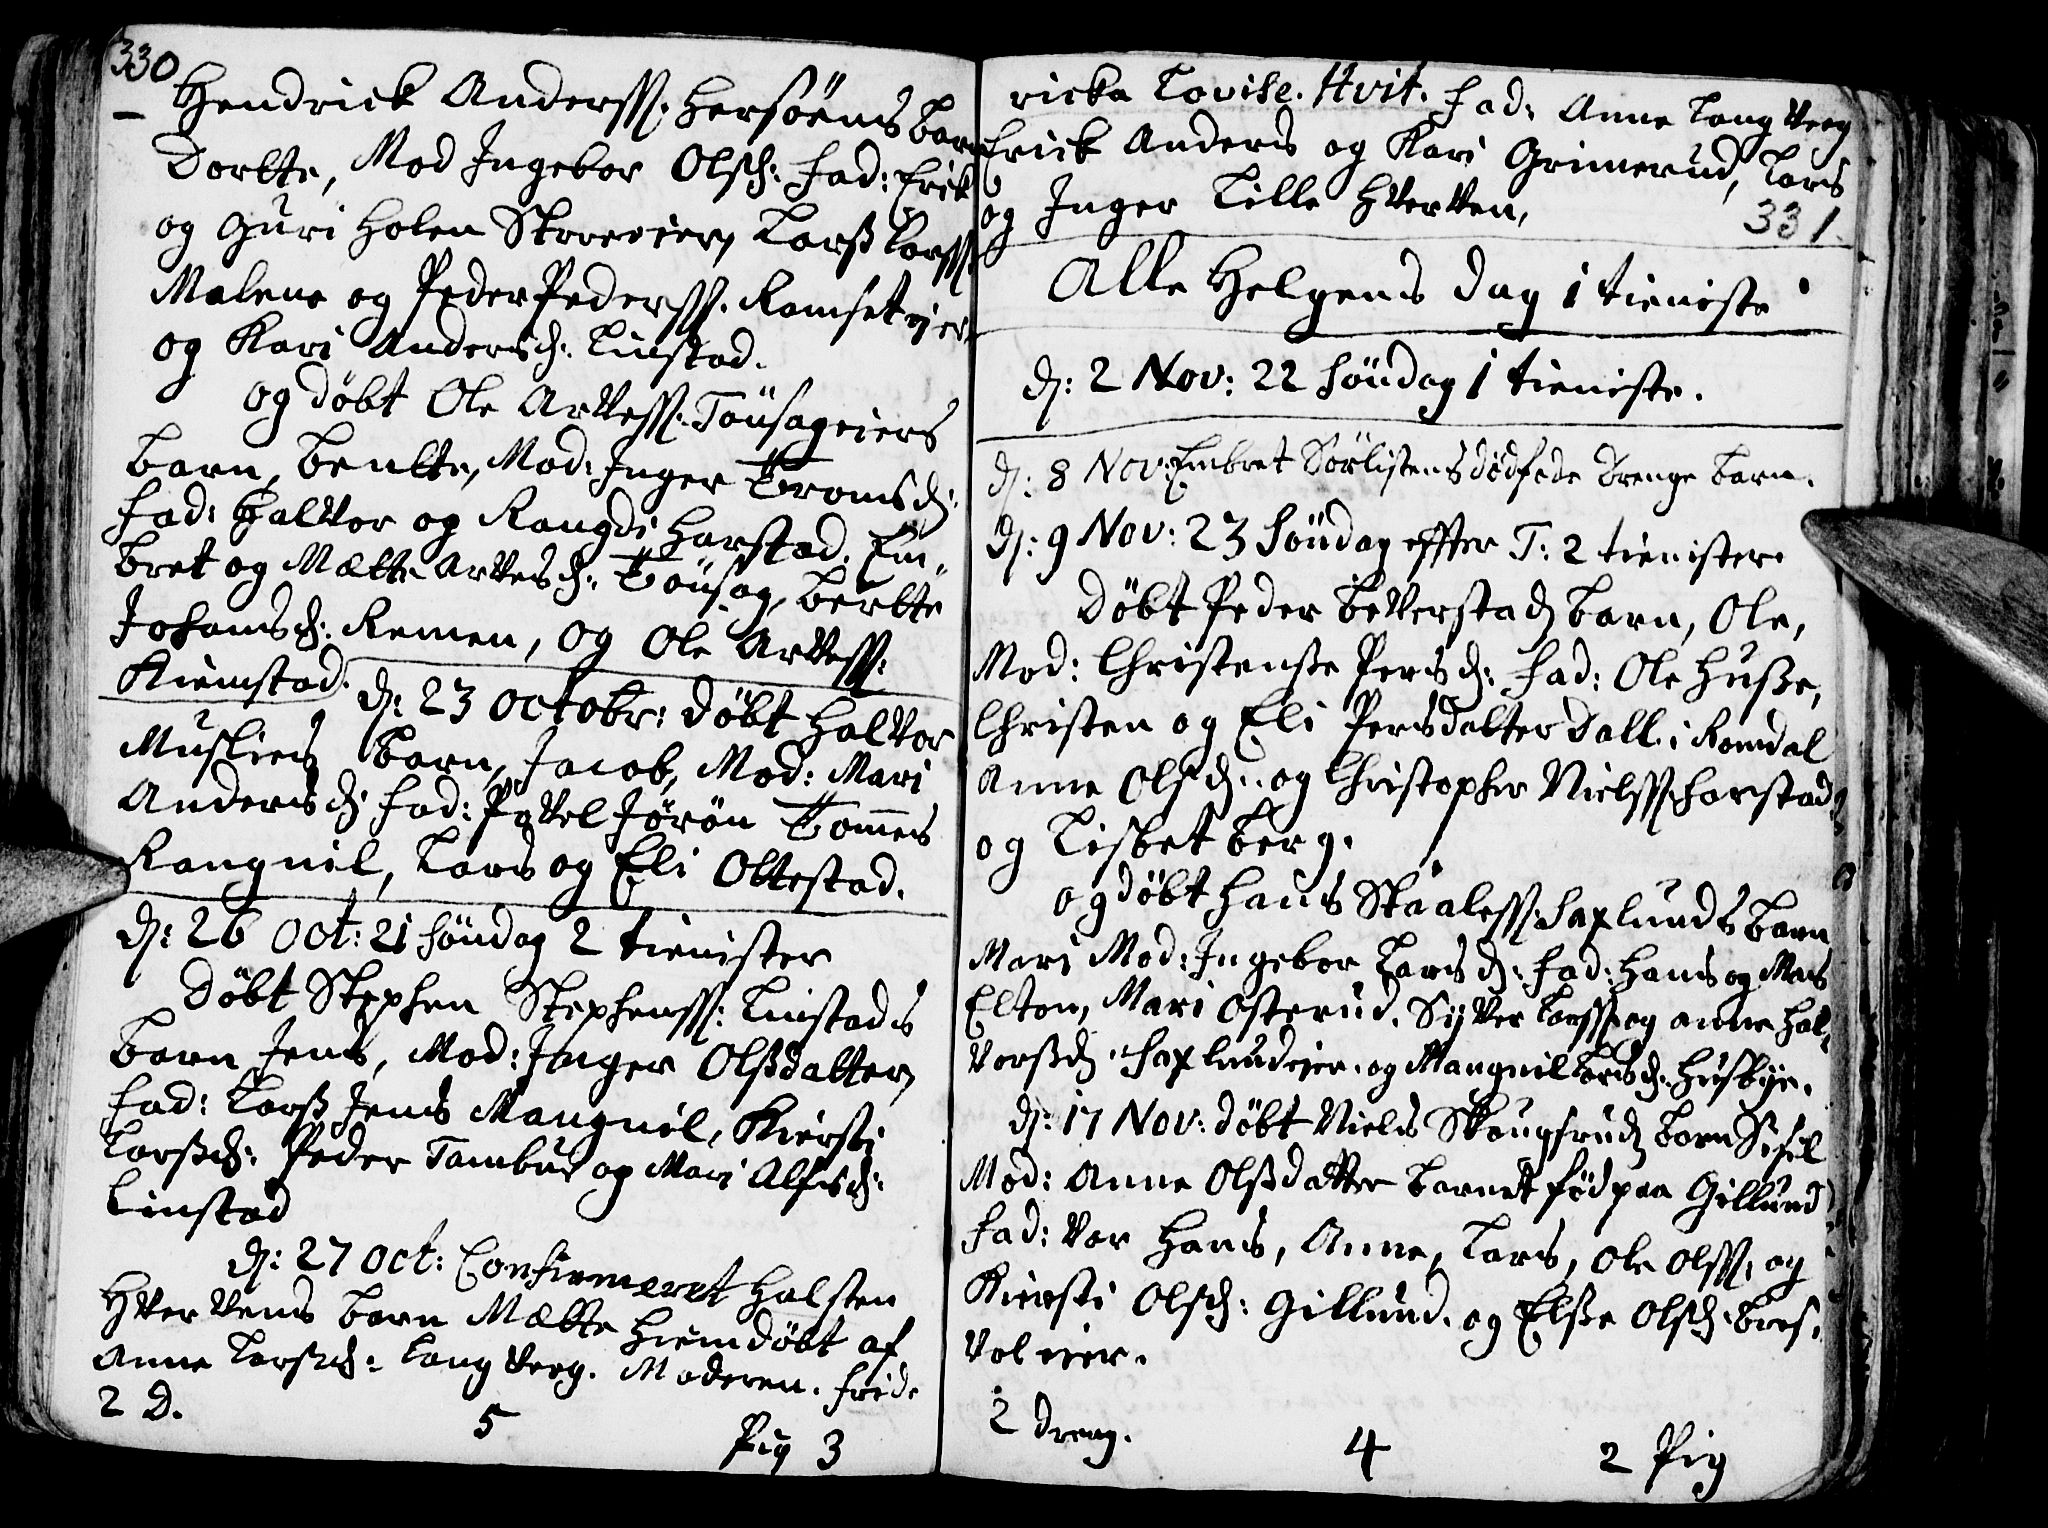 330
Hendrick Anderss. Hersöens barn
Dortte, Mod Ingebor Olsd: Fad: Erik
og Guri Holen Larss Larss.
Malene og Peder Pederss. Romsetejer
og Kari Andersd: Linstad.
og döbt Ole Arvess. Tousageiers
barn, bentte, Mod: Inger Tromsd:
Fad: Halvor og Rangdi Harstad. Em„
bret og Mætte Arvesd: Tousag, bertte
Johansd: Remen, og Ole Arvess.
Kiemstad.
d: 23 Octobr: döbt Halvor
Musliens barn, Jacob, Mod: Mari
Andersd: Fad: Povel Jörön Tommes
Rangnil, Lars og Eli Oltestad.
d: 26 Oct: 21 Söndag 2 tienister
Döbt Stephen Stephenss: Linstads
barn Jens, Mod: Inger Olssdatter,
Fad: Larss Jens Mangnil, Kiersti
Larssd: Peder Tambur og Mari Alfisd:
Linstad
d: 27 Oct: Confirmeret Halsten
Hvervens barn Mætte hiemdöbt af
Anne Larssd: Langverg. Moderen. Fride
2 D. 5 Pig 3
ricka Lovise. Hvit. Fad: Anne Langverg
Erick Anders og Kari Grimerud, Lars
og Inger Lille Hverven,
331.
Alle Helgens Dag 1 tieniste
d: 2 Nov: 22 Söndag 1 tieniste.
d: 8 Nov: Embret Sörlistens dödföde Drenge barn.
d: 9 Nov: 23 Söndag effter T: 2 tienister
Döbt Peder beverstad barn, Ole,
Mod: Christense Persd: Fad: Ole Husse,
Christen og Eli Persdatter Dall i Romdal
Anne Olsd: og Christopher Nielss. Harstad
og Lisbet berg.
og döbt Hans Skaaless. Saxlunds barn
Mari Mod: Ingebor Larsd: Fad: Hans og
Elton, Mari Osterud. Syver Larss. og Anne Hal„
vorssd. Saxlundejer. og Mangnil Larsd: Husbye.
d: 17 Nov: döbt Niels Skougsrud barn Sisel
Mod: Anne Olssdatter barnet föd paa Gillund
Fad: Vor Hans, Anne, Lars, Ole Olss. og
Kiersti Olsd: Gillund. og Elsse Olsd:
vol ejer.
2 dreng. 4 2 Pig